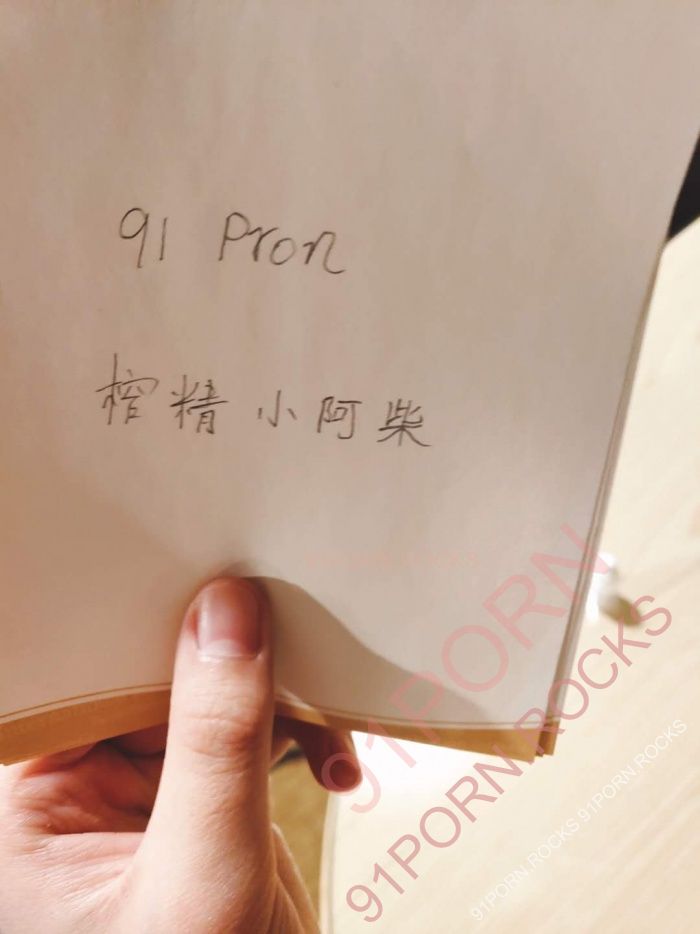 91 Pron
榨精小阿柴
91PORN
91PORN.ROCKS
91PORN.ROCKS 91PORN.ROCKS